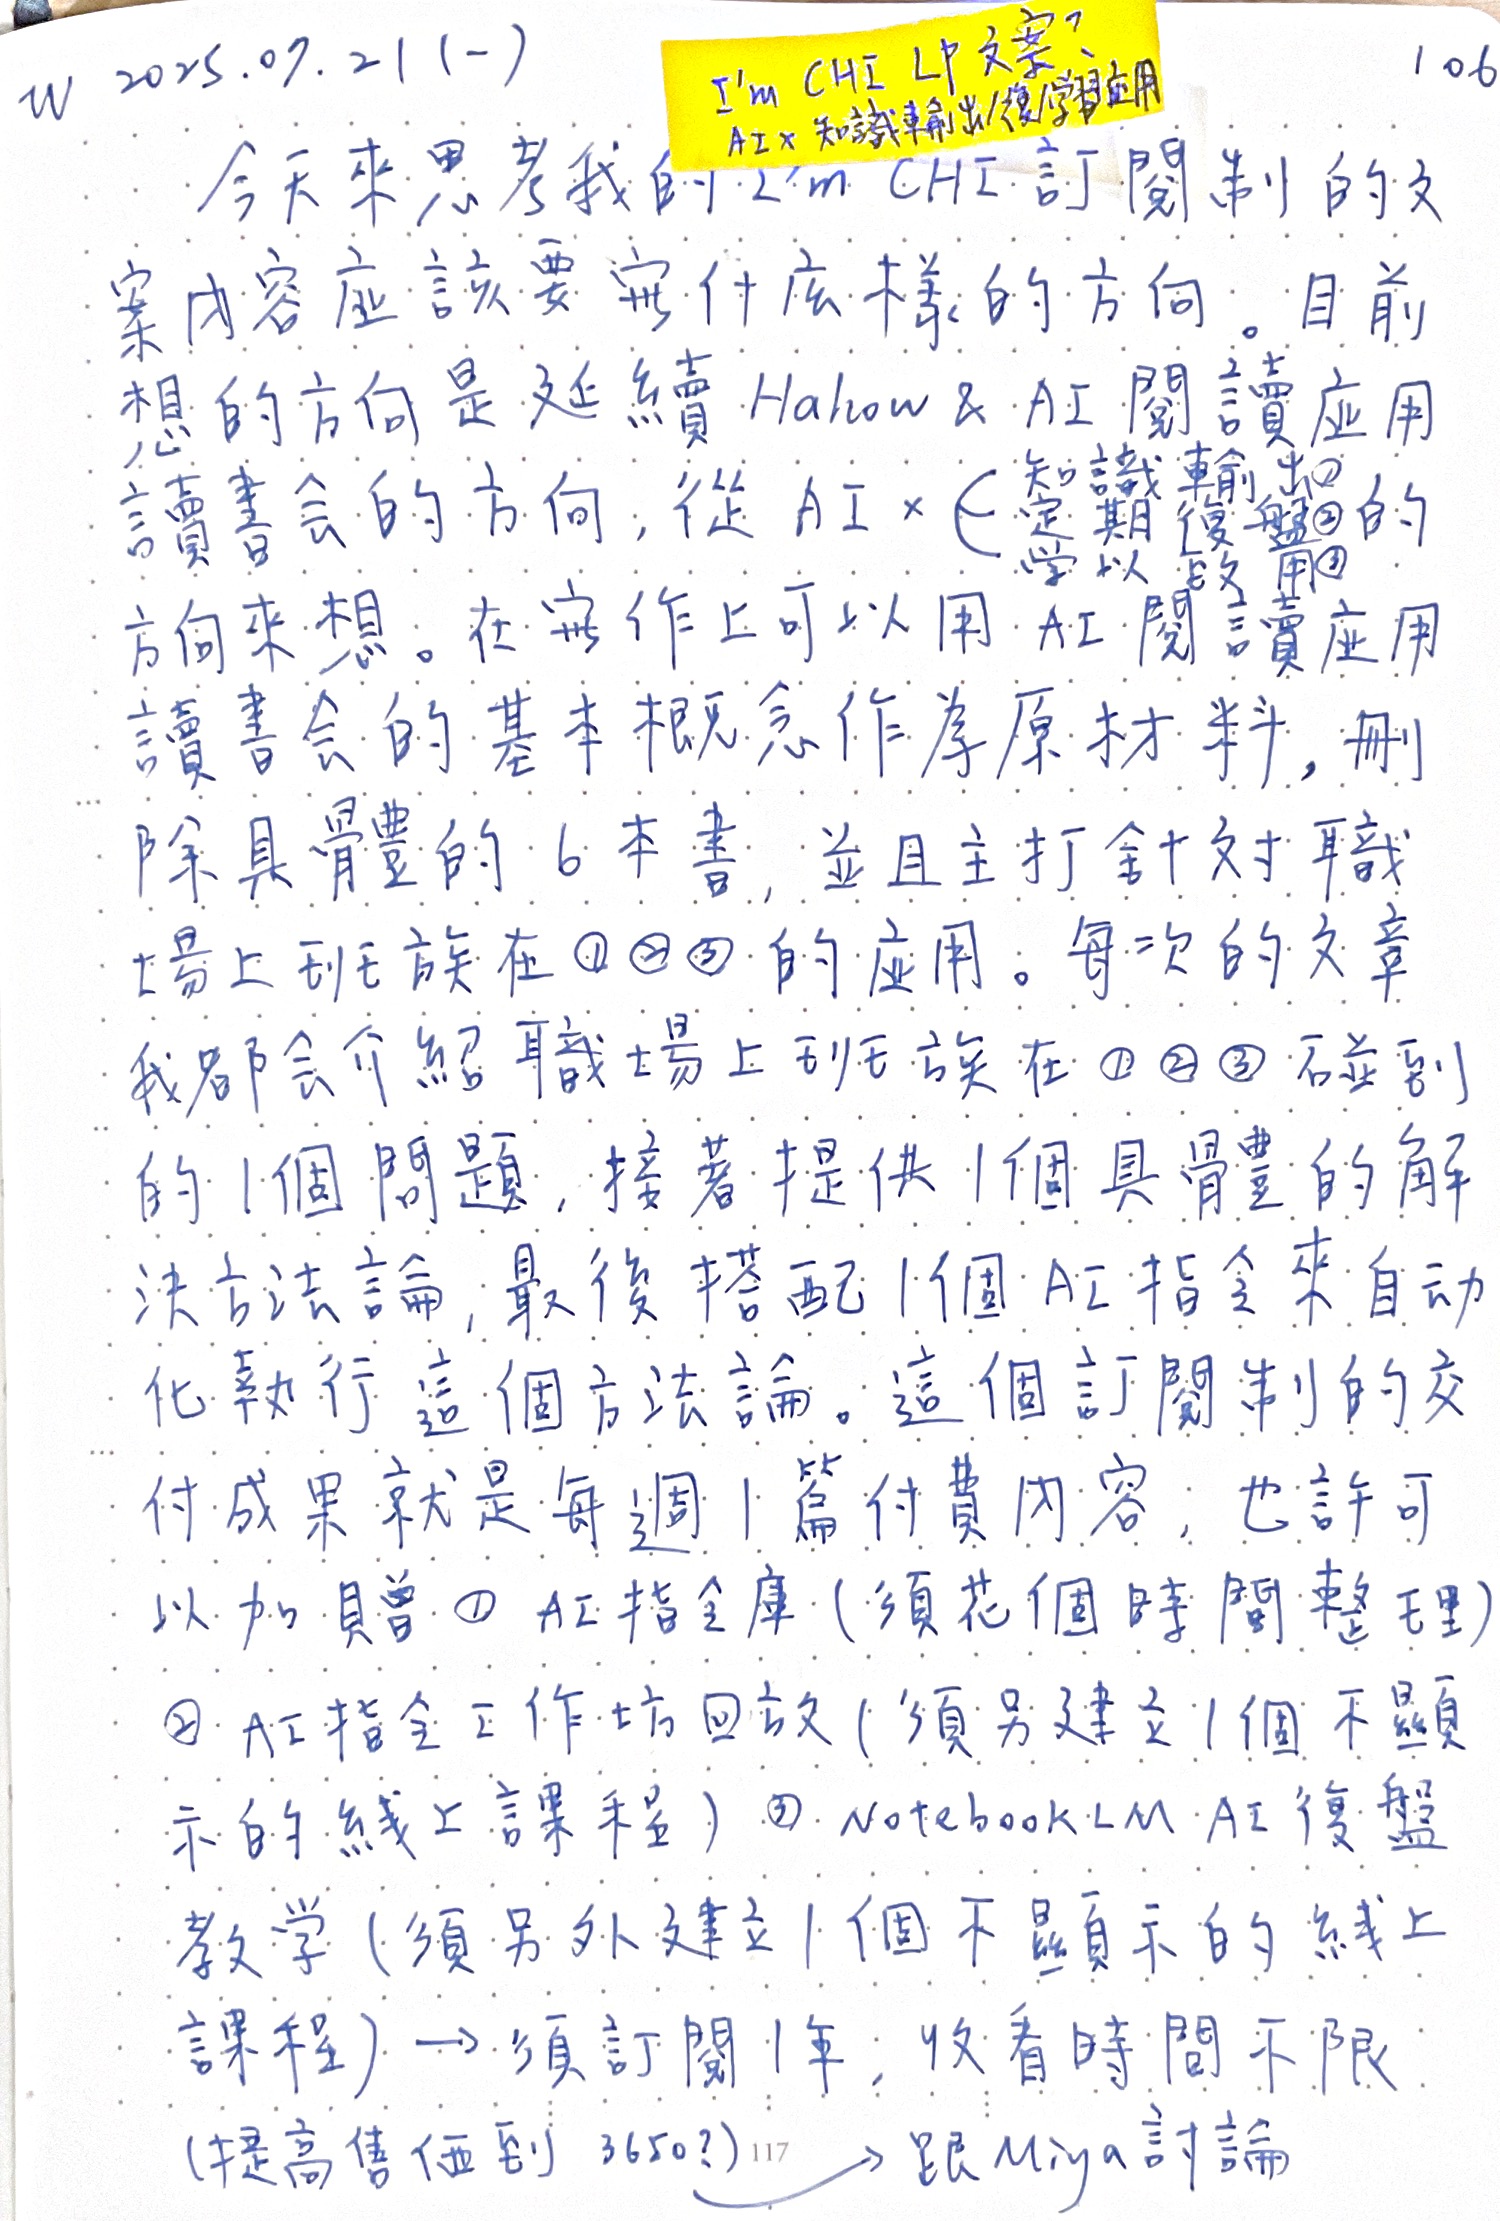 W 2025.07.21 (一)
I'm CHI LP 文案?
106
AI× 知識輸出/復/学習应用
今天來思考我的 I'm CHI 訂閱制的文
案内容应該要寫什么樣的方向。目前
想的方向是延續 Hahow & AI 閱讀应用
讀書会的方向,從 AI × ( 知識輸出① 定期復盤② 学以致用③ 的
方向來想。在寫作上可以用 AI 閱讀应用
讀書会的基本概念作為原材料,刪
除具體的 6 本書,並且主打針对職
場上班族在①②③的应用。每次的文章
我都会介紹職場上班族在①②③碰到
的1個問題,接著提供1個具體的解
決方法論,最後搭配1個AI指令來自动
化執行這個方法論。這個訂閱制的交
付成果就是每週1篇付費内容,也許可
以加贈①AI指令庫(須花個時間整理)
②AI指令工作坊回放(須另建立1個不顯
示的綫上課程)③NotebookLM AI復盤
教学(須另外建立1個不顯示的綫上
課程)→須訂閱1年,收看時間不限
(提高售価到 3650?) 117 → 跟Miya討論